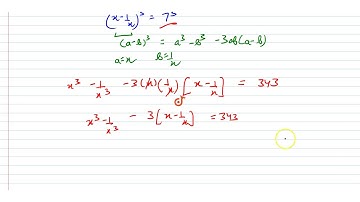 (x-1/x)³ = 7³
(a-b)³ = a³ - b³ - 3ab(a-b)
a=x b=1/x
x³ - 1/x³ - 3(x)(1/x)[x - 1/x] = 343
x³ - 1/x³ - 3[x - 1/x] = 343